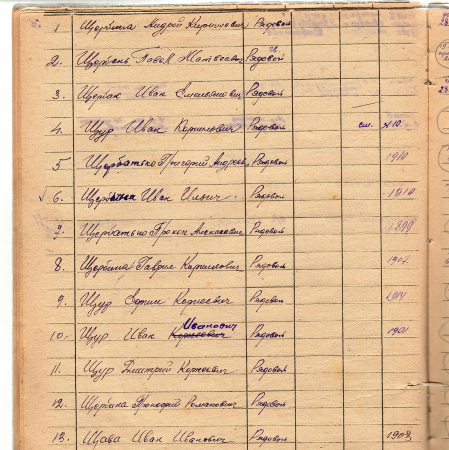 1 Щербина Андрей Кириллович Рядовой
2. Щербань Павел Матвеевич Рядовой
3. Щербак Иван Емельянович Рядовой
4. Щур Иван Корнеевич Рядовой см. №10.
5 Щербатько Григорий Андреев Рядовой 1910
6. Иван Ильич Рядовой 1910
7. Щербатько Прокоп Алексеевич Рядовой 1899
8. Щербина Гаврил Кириллович Рядовой
9. Щур Ефим Корнеевич Рядовой 1914
Иванович
10. Щур Иван Корнеевич Рядовой 1901
11. Щур Дмитрий Корнеевич Рядовой
12. Щербина Прокофий Романович Рядовой
13. Щава Иван Иванович Рядовой 1908